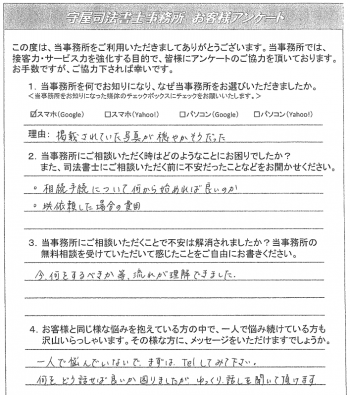 守屋司法書士事務所 お客様アンケート
この度は、当事務所をご利用いただきましてありがとうございます。当事務所では、
接客力・サービス力を強化する目的で、皆様にアンケートのご協力を頂いております。
お手数ですが、ご協力下されば幸いです。
1. 当事務所を何でお知りになり、なぜ当事務所をお選びいただきましたか。
<当事務所をお知りになった媒体のチェックボックスにチェックをお願いいたします。>
☑スマホ(Google) □スマホ(Yahoo!) □パソコン(Google) □パソコン(Yahoo!)
理由: 掲載されていた写真が穏やかそうだった
2. 当事務所にご相談いただく時はどのようなことにお困りでしたか?
また、司法書士にご相談いただく前に不安だったことなどをお聞かせください。
。相続手続について何から始めれば良いのか
。依頼した場合の費用
3. 当事務所にご相談いただくことで不安は解消されましたか?当事務所の
無料相談を受けていただいて感じたことをご自由にお書きください。
今、何をするべきか等、流れが理解できました。
4. お客様と同じ様な悩みを抱えている方の中で、一人で悩み続けている方も
沢山いらっしゃいます。その様な方に、メッセージをいただけますでしょうか。
一人で悩んでいないで、まずは、Telしてみて下さい。
何を、どう話せば良いか困りましたが、ゆっくり話しを聞いて頂けます